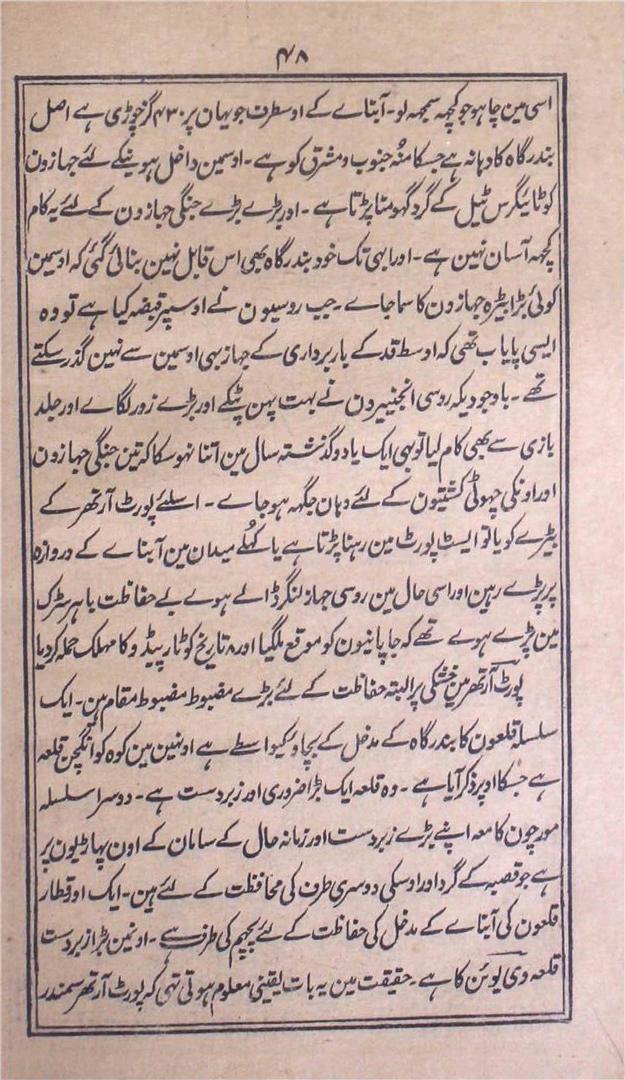 ۴۸
اسی مین چاہو جو کچہہ سمجہہ لو۔ آبناے کے اوسطرف جو یہان پر ۴۳۰ گز چوڑی ہے اصل
بندرگاہ کا دہانہ ہے جسکا منُہ جنوب و مشرق کو ہے۔ اوسمین داخل ہونیکے لئے جہازون
کو ٹائیگرس ٹیل کے گرد گہومنا پڑتا ہے۔ اور بڑے بڑے جنگی جہازون کے لئے یہ کام
کچہہ آسان نہین ہے۔ اور ابہی تک خود بندرگاہ بھی اس قابل نہین بنائی گئی کہ اوسمین
کوئی بڑا بیڑہ جہازون کا سما جاے۔ جب روسیون نے اوسپر قبضہ کیا ہے تو وہ
ایسی پایاب تھی کہ اوسط قد کے باربرداری کے جہاز بہی اوسمین سے نہین گذر سکتے
تھے۔ باوجودیکہ روسی انجنیرون نے بہت پہن پٹکے اور بڑے زور لگاے اور جلد
بازی سے بھی کام لیا تو بہی ایک یا دو گذشتہ سال مین اتنا نہو سکا کہ تین جنگی جہازون
اور اونکی چہوٹی کشتیون کے لئے وہان جگہہ ہو جاے۔ اسلئے پورٹ آرتھر کے
بیڑے کو یا تو ایسٹ پورٹ مین رہنا پڑتا ہے یا کُہلے میدان مین آبناے کے دروازہ
پر پڑے رہین اور اسی حال مین روسی جہاز لنگر ڈالے ہوے بے حفاظت باہر سڑک
مین پڑے ہوے تھے کہ جاپانیون کو موقع ملگیا اور ۸ تاریخ کو ٹارپیڈو کا مہلک حملہ کر دیا
پورٹ آرتھر مین خشکی پر البتہ حفاظت کے لئے بڑے مضبوط مضبوط مقام ہین۔ ایک
سلسلہ قلعون کا بندرگاہ کے مدخل کے بچاو کیواسطے ہے اونہین مین کوہ کوانگچن قلعہ
ہے جسکا اوپر ذکر آیا ہے۔ وہ قلعہ ایک بڑا ضروری اور زبردست ہے۔ دوسرا سلسلہ
مورچون کا معہ اپنے بڑے زبردست اور زمانہ حال کے سامان کے اون پہاڑیون پر
ہے جو قصبہ کے گرد اور اوسکی دوسری طرف کی محافظت کے لئے ہین۔ ایک اور قطار
قلعون کی آبناے کے مدخل کی حفاظت کے لئے پچہم کی طرف ہے۔ اونمین بڑا زبردست
قلعہ وی یوئن کا ہے۔ حقیقت مین یہ بات یقینی معلوم ہوتی تہی کہ پورٹ آرتھر سمندر